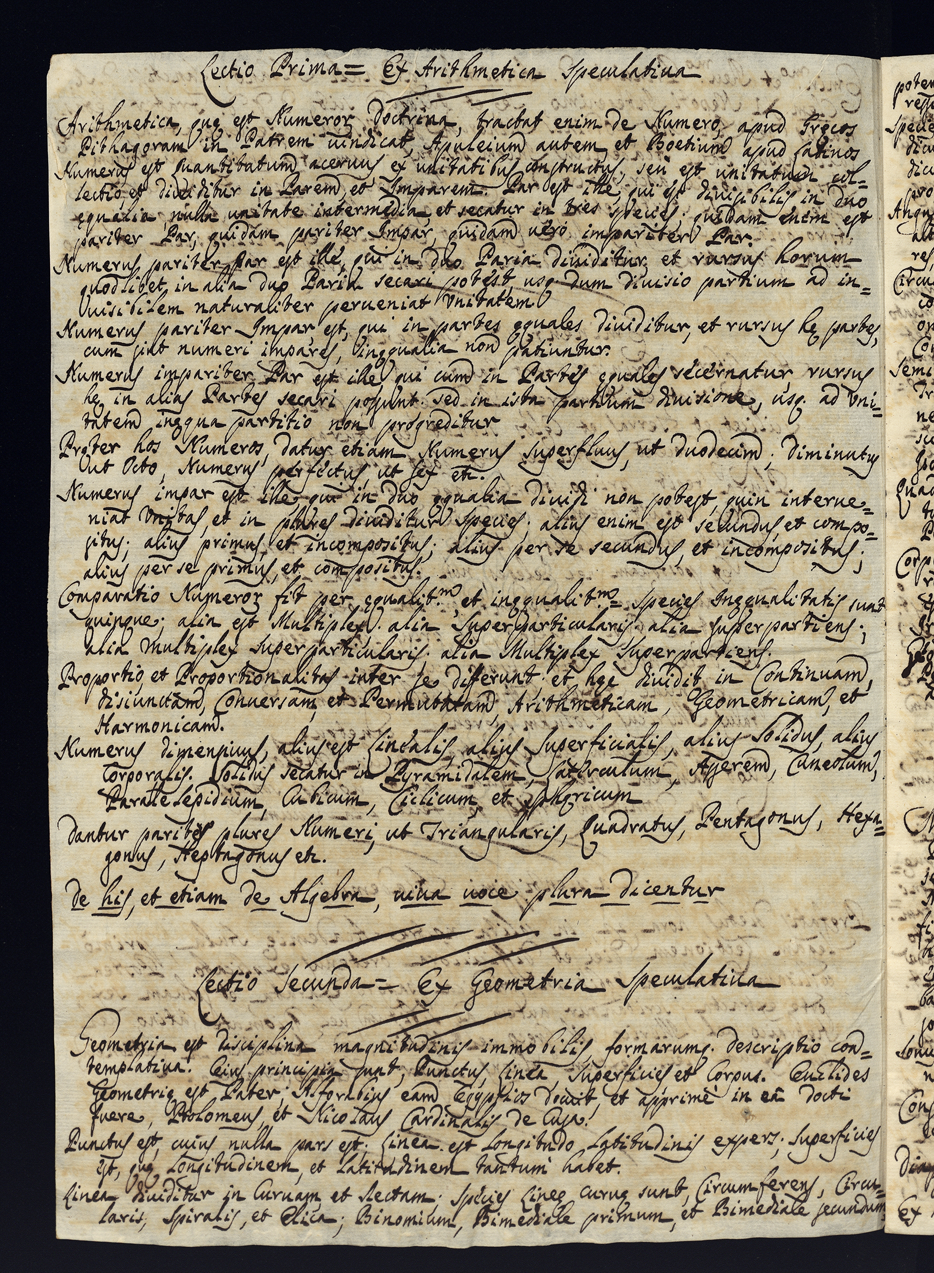 Lectio Prima = Ex Arithmetica Speculatiua
Arithmetica, quę est Numeror Doctrina, tractat enim de Numero, apud Gręcos
Pithagoram in Patrem uindicat, Apuleium autem et Boetium apud Latinos
Numerus est quantitatum aceruus ex unitatibus constructus, seu est unitatum col=
lectio, et diuiditur in Parem, et Imparem. Par est ille, qui est diuisibilis in duo
ęqualia, nulla unitate intermedia, et secatur in tres species: quidam enim est
pariter Par, quidam pariter Impar, quidam uero impariter Par.
Numerus pariter Par est ille, qui in duo Paria diuiditur, et rursus horum
quodlibet, in alia duo Paria secari potest, usq dum diuisio partium ad in=
diuisibilem naturaliter perueniat Vnitatem
Numerus pariter Impar est, qui in partes ęquales diuiditur, et rursus hę partes,
cum sint numeri impares, inęqualia non patiuntur.
Numerus impariter Par est ille qui cum in Partes ęquales secernatur, rursus
hę in alias Partes secari possunt: sed in ista partium diuisione, usq. ad Vni=
tatem inęqua partitio non progreditur
Pręter hos Numeros, datur etiam Numerus Superfluus, ut duodecim: diminutus
ut Octo, Numerus perfectus, ut sex etc.
Numerus impar est ille qui in duo ęqualia diuidi non potest, quin interue=
niat Vnitas, et in plures diuiditur Species: alius enim est secundus, et compo=
situs; alius primus, et incompositus; alius per se secundus, et incompositus;
alius per se primus, et compositus.
Comparatio Numeror fit per ęqualit.m, et inęqualit.m = Species Inęqualitatis sunt
quinque; alia est Multiplex: alia Superparticularis: alia superpartiens;
alia multiplex Superparticularis: alia Multiplex Superpartiens.
Proportio et Proportionalitas inter se differunt: et hęc diuidit in Continuam,
disiunctam, Conuersam, et Permutatam, Arithmeticam, Geometricam, et
Harmonicam.
Numerus dimensiuus, alius est Linealis, alius Superficialis, alius Solidus, alius
Corporalis. Solidus secatur in Pyramidalem, Laterculum, Asserem, Cuneolum,
Parallelepidium, Cubicum, Ciclicum, et sphęricum
Dantur pariter plures Numeri, ut Triangularis, Quadratus, Pentagonus, Hexa=
gonus, Heptagonus etc.
de his, et etiam de Algebra, uiua uoce plura dicentur
Lectio Secunda = Ex Geometria Speculatiua
Geometria est disciplina magnitudinis immobilis, formarumq. descriptio con=
templatiua. Eius principia sunt, Punctus, Linea, Superficies et Corpus. Euclides
Geometrię est Pater; Alforbius eam Egyptios docuit, et apprime in ea docti
fuere, Ptolomeus, et Nicolaus Cardinalis de Cusa.
Punctus est, cuius nulla pars est. Linea est Longitudo Latitudinis expers; Superficies
est, quę Longitudinem, et Latitudinem tantum habet.
Linea diuiditur in Curuam et Rectam: Species Lineę curuę sunt, Circumferens, Circu=
laris, Spiralis, et Elica; Binomium, Bimediale primum, et Bimediale secundum